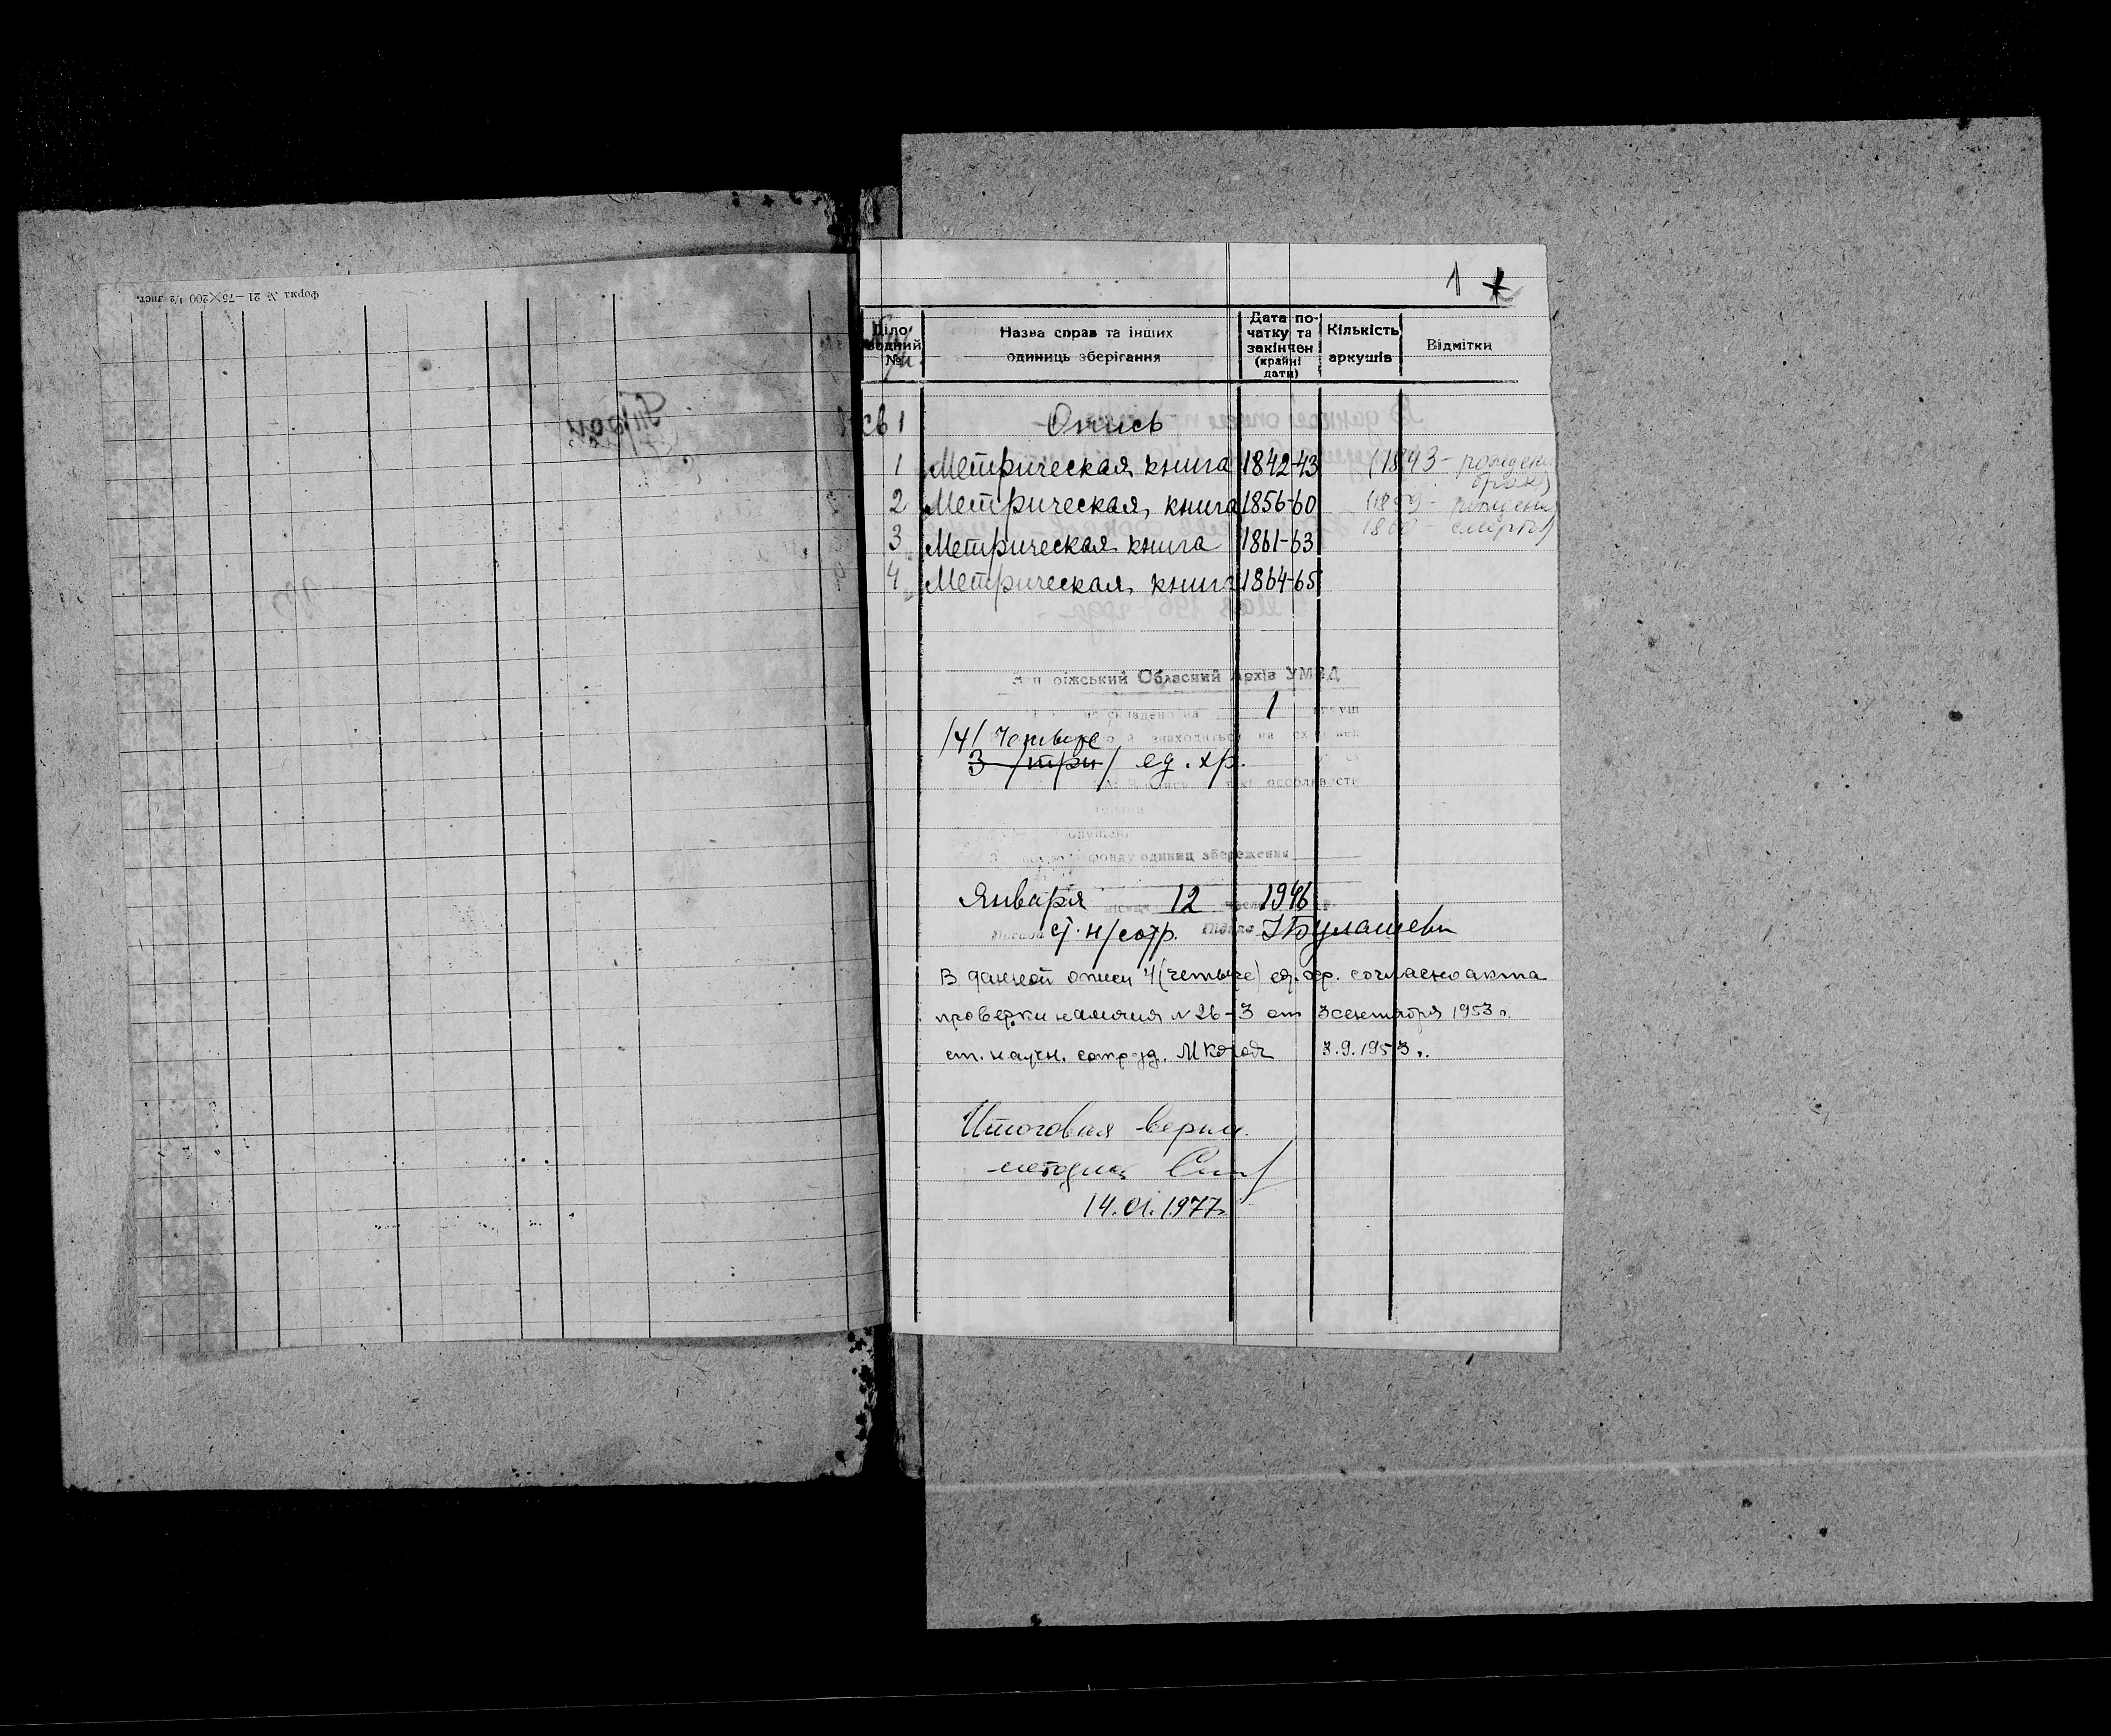 Форма № 21—75×200 1/2 лист.
1
Діловодний №
Назва справ та інших одиниць зберігання
Дата початку та закінчен (крайні дати)
Кількість аркушів
Відмітки
св 1 Опись
1 Метрическая книга 1842-43 (1843 - рождени
брак)
2 Метрическая книга 1856-60 (1859 - рождени
1860 - смерть)
3 Метрическая книга 1861-63
4 Метрическая книга 1864-65
Обласний Архів УМВД
складено на 1
/4/ Четыре знаходиться на
3 /три/ ед. хр.
особливости
фонду одиниц збереження
Января 12 1946
Посада ст. н/сотр. Підпис
В данной описи 4 (четыре) ед. хр. согласно акта
проверки наличия № 26-3 от 3 сентября 1953 г.
ст. научн. сотруд. 3.9.1953 г.
Итоговая верна.
методист
14.01.1977г